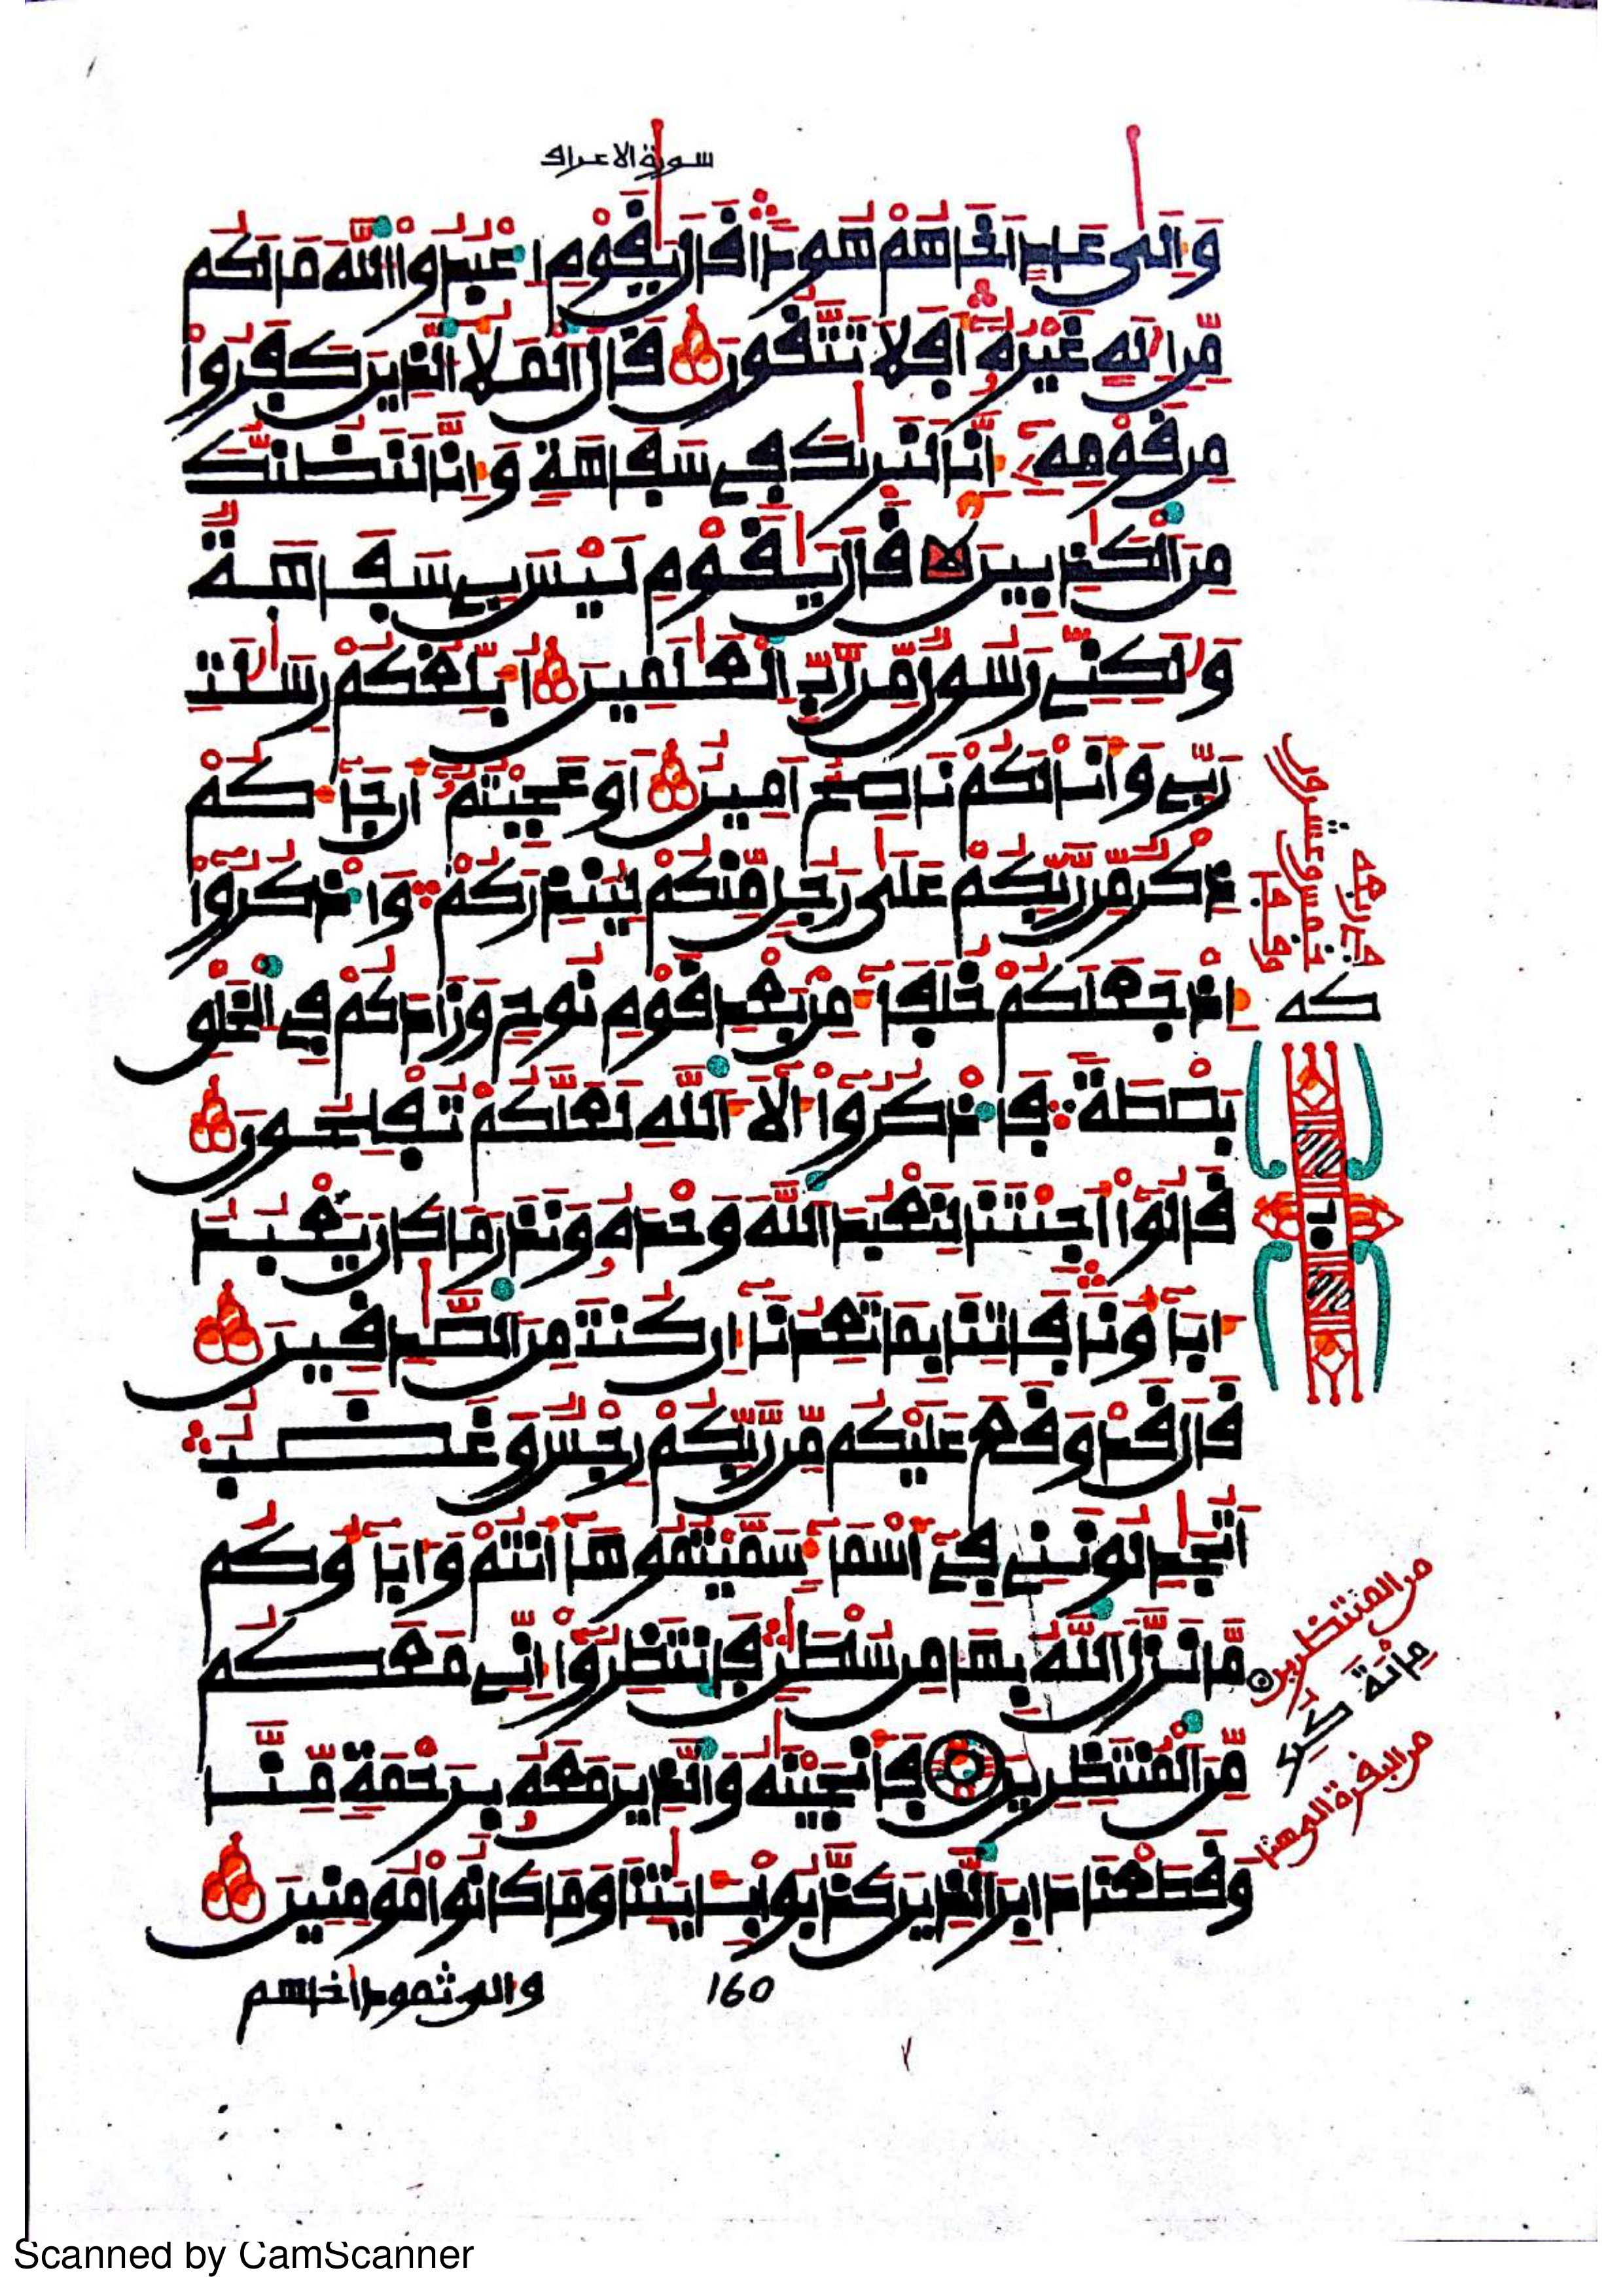 سورة الاعراف
وَإِلَىٰ عَادٍ أَخَاهُمْ هُودًا قَالَ يَٰقَوْمِ اِعْبُدُوا۟ اللَّهَ مَا لَكُم
مِّنِ اِلَٰهٍ غَيْرُهُۥٓ أَفَلَا تَتَّقُونَ قَالَ اَلْمَلَأُ الَّذِينَ كَفَرُوا۟
مِن قَوْمِهِۦٓ إِنَّا لَنَرَىٰكَ فِي سَفَاهَةٍ وَإِنَّا لَنَظُنُّكَ
مِنَ اَلْكَٰذِبِينَ قَالَ يَٰقَوْمِ لَيْسَ بِي سَفَاهَةٌ
وَلَٰكِنِّي رَسُولٌ مِّن رَّبِّ اِلْعَٰلَمِينَ أُبَلِّغُكُمْ رِسَٰلَٰتِ
رَبِّي وَأَنَا لَكُمْ نَاصِحٌ أَمِينٌ أَوَعَجِبْتُمُۥٓ أَن جَآءَكُمْ
ذِكْرٌ مِّن رَّبِّكُمْ عَلَىٰ رَجُلٍ مِّنكُمْ لِيُنذِرَكُمْ وَاذْكُرُوٓا۟
إِذْ جَعَلَكُمْ خُلَفَآءَ مِنۢ بَعْدِ قَوْمِ نُوحٍ وَزَادَكُمْ فِي اِلْخَلْقِ
بَصْۜطَةً فَاذْكُرُوٓا۟ ءَالَآءَ اَللَّهِ لَعَلَّكُمْ تُفْلِحُونَ
قَالُوٓا۟ أَجِئْتَنَا لِنَعْبُدَ اَللَّهَ وَحْدَهُۥ وَنَذَرَ مَا كَانَ يَعْبُدُ
ءَابَآؤُنَا فَاتِنَا بِمَا تَعِدُنَآ إِن كُنتَ مِنَ اَلصَّٰدِقِينَ
قَالَ قَدْ وَقَعَ عَلَيْكُم مِّن رَّبِّكُمْ رِجْسٌ وَغَضَبٌ
أَتُجَٰدِلُونَنِي فِيٓ أَسْمَآءٍ سَمَّيْتُمُوهَآ أَنتُمْ وَءَابَآؤُكُم
مَّا نَزَّلَ اَللَّهُ بِهَا مِن سُلْطَٰنٍ فَانتَظِرُوٓا۟ إِنِّي مَعَكُم
مِّنَ اَلْمُنتَظِرِينَ فَأَنجَيْنَٰهُ وَالَّذِينَ مَعَهُۥ بِرَحْمَةٍ مِّنَّا
وَقَطَعْنَا دَابِرَ اَلَّذِينَ كَذَّبُوا۟ بِـَٔايَٰتِنَا وَمَا كَانُوا۟ مُومِنِينَ
والى ثمود اخاهم
160
من المنتظرين
مائة
من البقرة الى هنا
Scanned by CamScanner